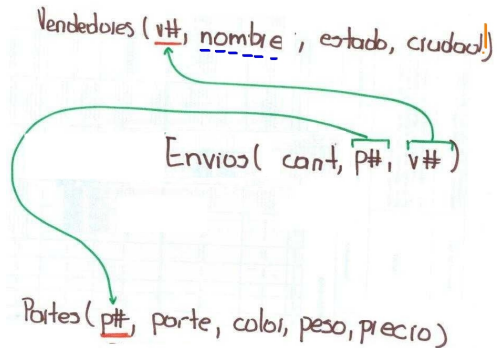 Vendedores (v#, nombre, estado, ciudad)
Envios( cant, p#, v#)
Partes(p#, parte, color, peso, precio)